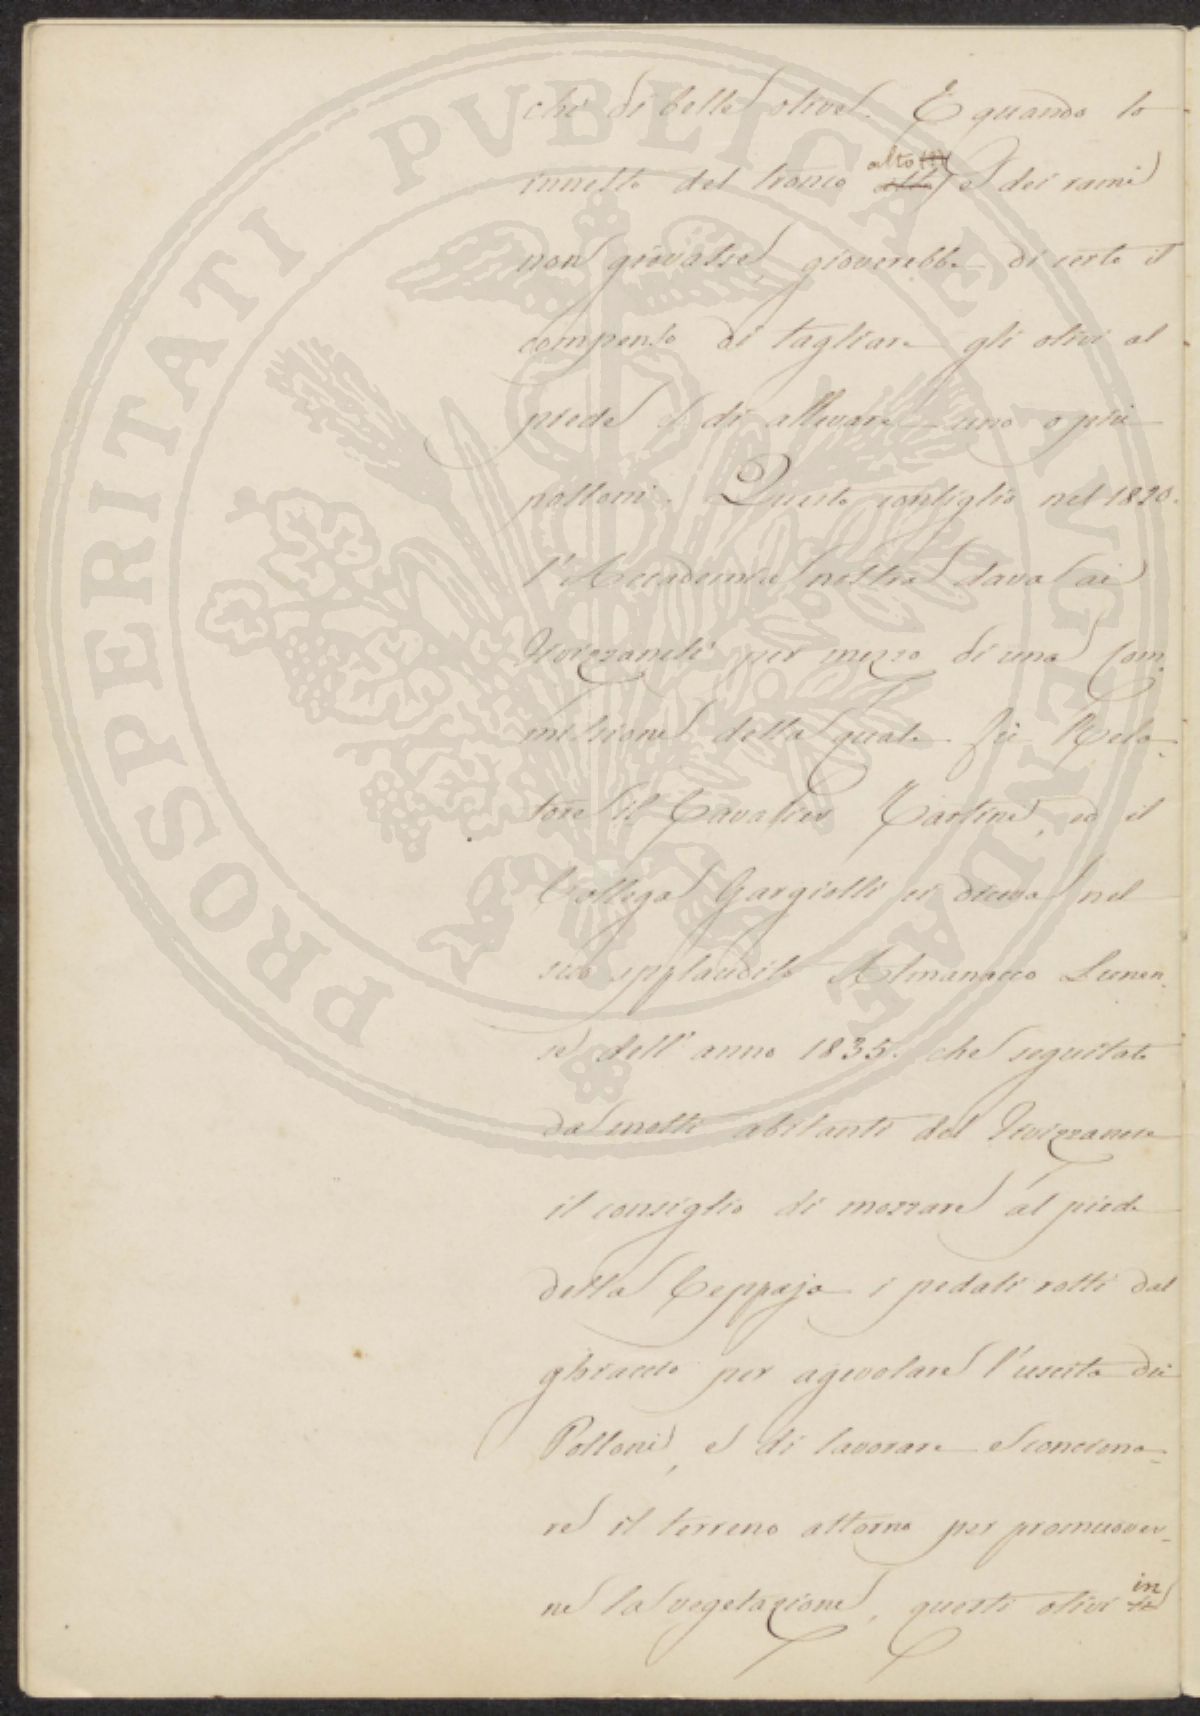 PROSPERITATI PVBLICAE AVGENDAE
chè di belle olive. E quando lo
innesto del tronco alto e dei rami
non giovasse, gioverebbe di certo il
compenso di tagliare gli olivi al
piede e di allevare uno o più
polloni. Questo consiglio nel 1820.
l'Accademia nostra dava ai
Fivizzanesi per mezzo di una Com-
missione della quale fù Rela-
tore il Cavalier Tartini, ed il
Collega Gargiolli ci diceva nel
suo applaudito Almanacco Lunen-
se dell'anno 1835. che seguitato
da molti abitanti del Fivizzanese
il consiglio di mozzare al piede
della Ceppaja i pedali rotti dal
ghiaccio per agevolare l'uscita dei
Polloni, e di lavorare e conciona-
re il terreno attorno per promuover-
ne la vegetazione, questi olivi in